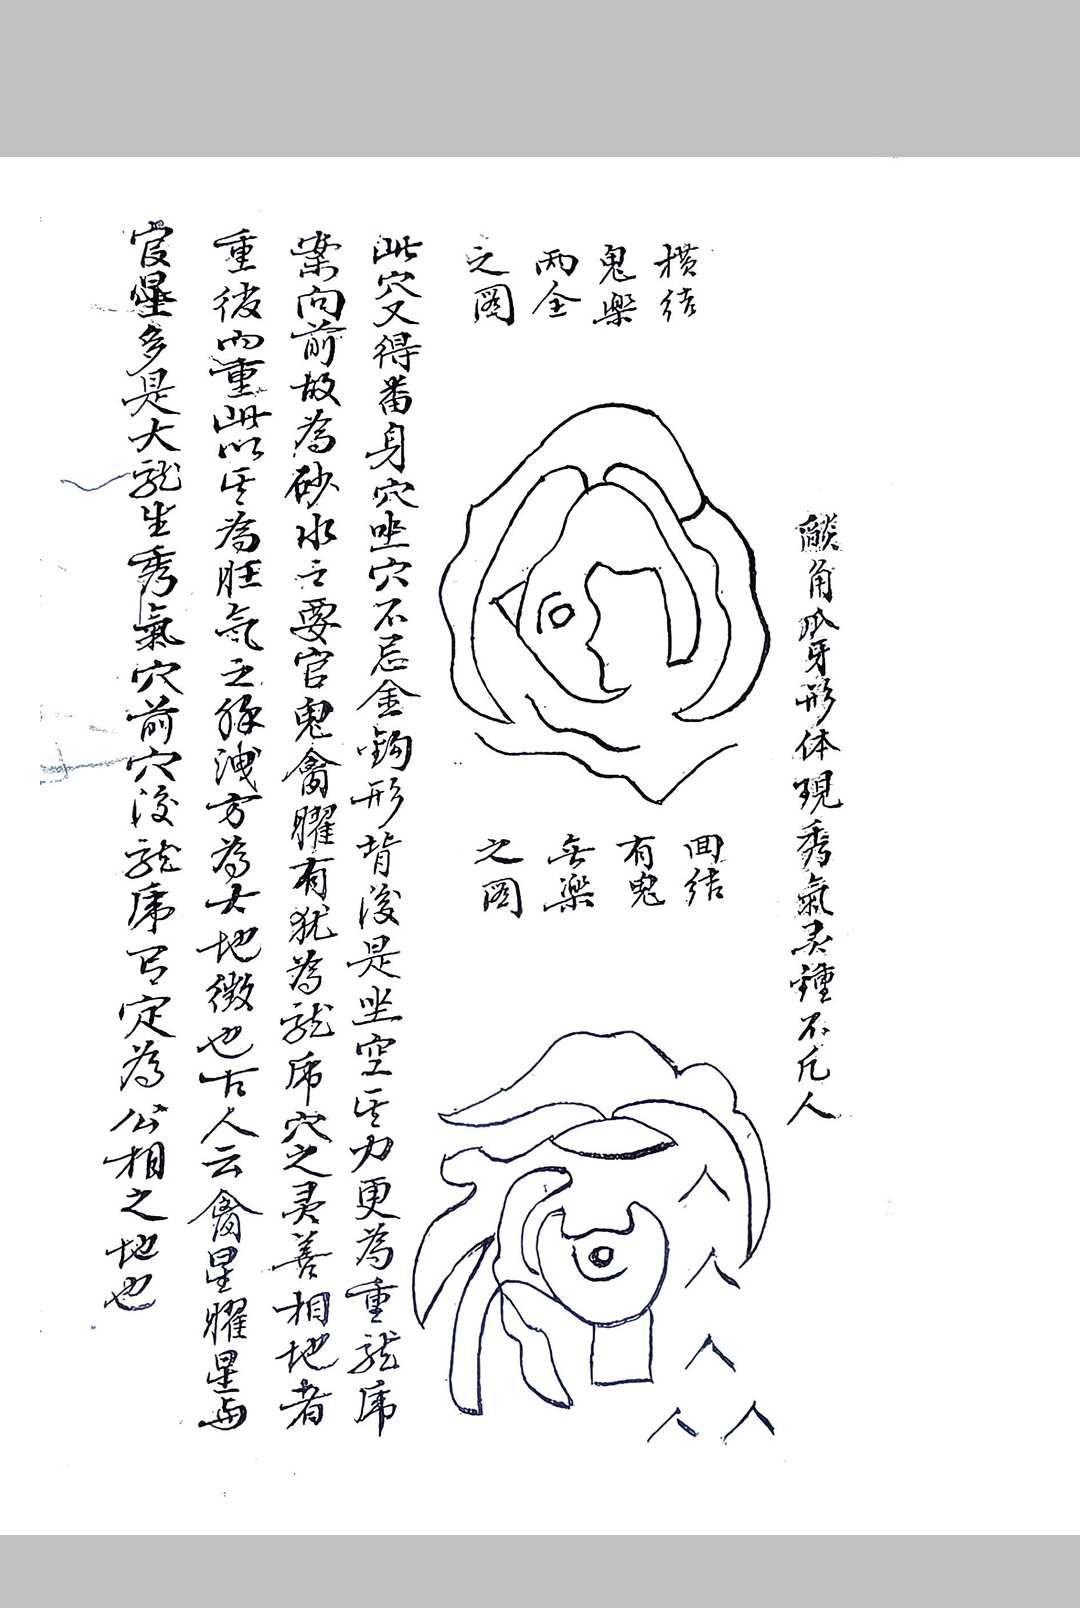 角爪牙形体現秀氣灵鍾不凡人
横結
鬼樂
兩全
之圖
回結
有鬼
無樂
之圖
此穴又得番身穴坐穴不忌金鈎形背後是坐空其力更為重龍虎
案向前故為砂水之要官鬼禽曜有犹為龍虎穴之灵善相地者
重後而重此以其為旺氣之脉洩方為大地徵也古人云禽星曜星与
官星多是大龍生秀氣穴前穴後龍虎官定為公相之地也